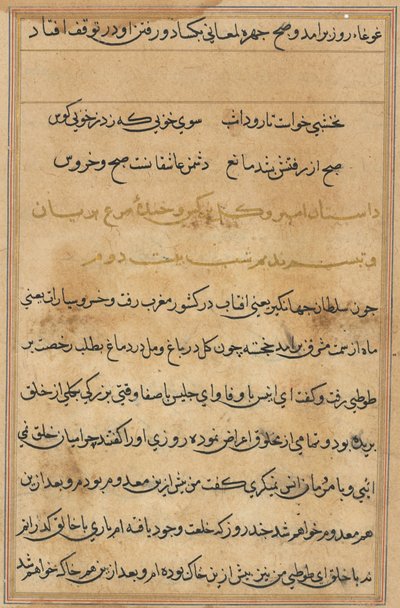 غوغاء روز برامد و صبح چهره لمعانی بکشاد و رفتن او در توقف افتاد
نخشبی خواست تا رود امشب سوی خوبی که زد در خوبی کوس
صبح از رفتنش بشد مانع دشمن عاشقانست صبح و خروس
داستان امیر و کل و خنده مرغ بریان
شب بیست دوم
چون سلطان جهانکیر یعنی افتاب در کشور مغرب رفت و خسرو سیارات یعنی
ماه از سمت مشرق برامد خجسته چون کل در باغ و مل در دماغ بطلب رخصت بر
طوطی رفت و کفت ای انیس با وفا و ای جلیس با صفا وقتی بزرکی بکلی از خلق
بریده بود و تمامی از مخلوق اعراض نموده روزی او را کفتند چرا میان خلق نمی
ائیی و با مردمان انس نمیکری کفت من پیش ازین معدوم بودم و بعد ازین
هم معدوم خواهم شد چند روز که خلعت وجود یافته ام باری با خالق کذرانم
نه با خلق ای طوطی من نیز پیش ازین خاک بوده ام و بعد ازین هم خاک خواهم شد